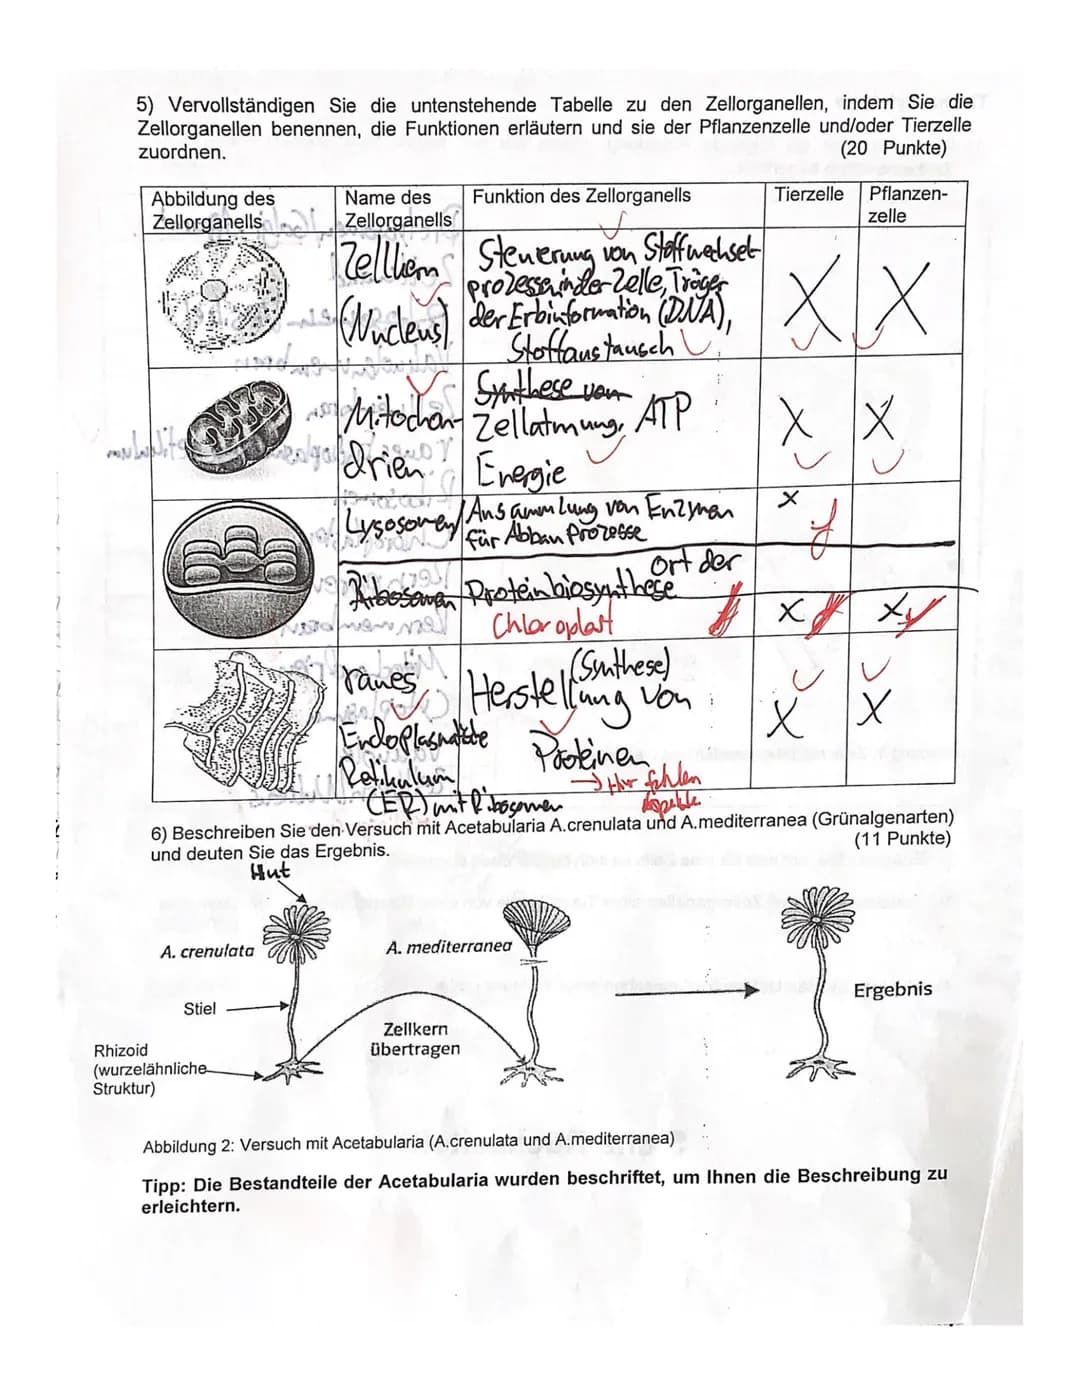 5) Vervollständigen Sie die untenstehende Tabelle zu den Zellorganellen, indem Sie die
Zellorganellen benennen, die Funktionen erläutern und sie der Pflanzenzelle und/oder Tierzelle
zuordnen. (20 Punkte)
Abbildung des
Zellorganells
Name des
Zellorganells
Funktion des Zellorganells
Tierzelle
Pflanzen-
zelle
Zellkern
(Nucleus)
Steuerung von Stoffwechsel-
prozessen in der Zelle, Träger
der Erbinformation (DNA),
Stoffaustausch
X X
Mitochon-
drien
Synthese von
Zellatmung, ATP
Energie
X X
Lysosomen
Ansammlung von Enzymen
für Abbau Prozesse
x f
Ribosomen
Ort der
Proteinbiosynthese
Chloroplast
X x
raues
Endoplasmatische
Retikulum
(ER) mit Ribosomen
(Synthese)
Herstellung von
Proteinen
→ Hier fehlen
Aspekte
X X
6) Beschreiben Sie den Versuch mit Acetabularia A.crenulata und A.mediterranea (Grünalgenarten)
und deuten Sie das Ergebnis. (11 Punkte)
Hut
A. crenulata
A. mediterranea
Stiel
Ergebnis
Zellkern
übertragen
Rhizoid
(wurzelähnliche
Struktur)
Abbildung 2: Versuch mit Acetabularia (A.crenulata und A.mediterranea)
Tipp: Die Bestandteile der Acetabularia wurden beschriftet, um Ihnen die Beschreibung zu
erleichtern.